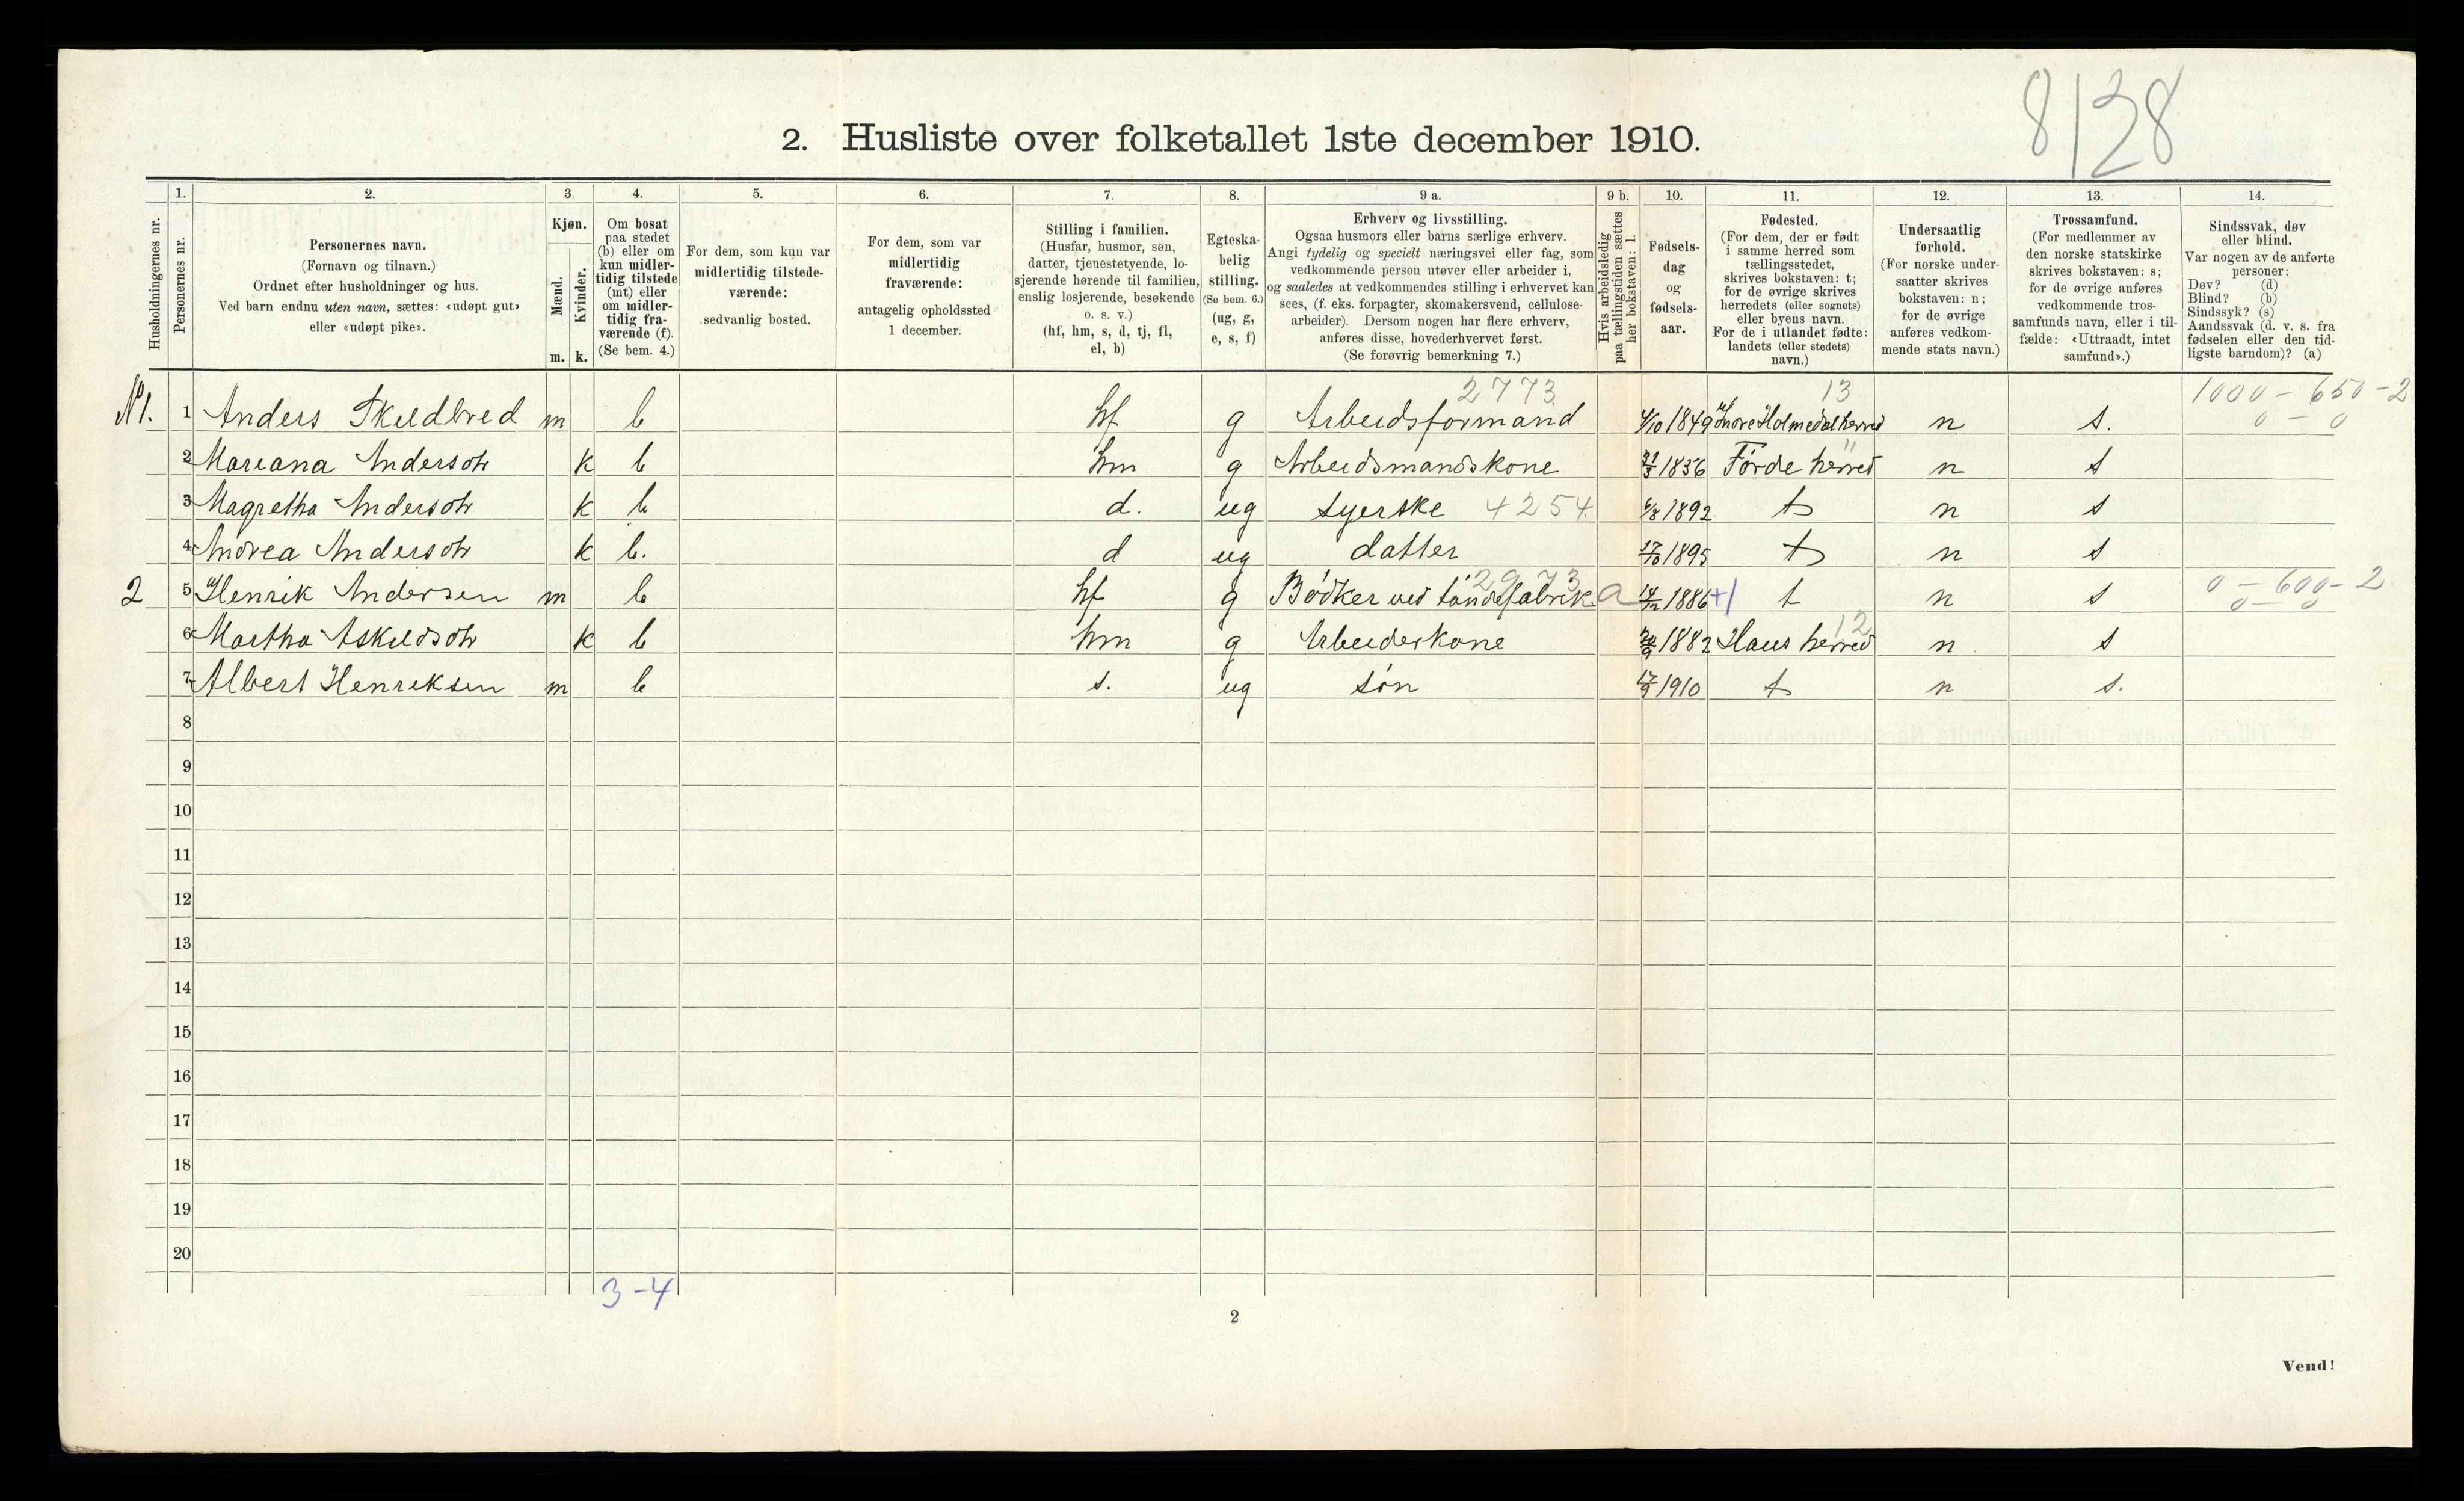 8128
2. Husliste over folketallet 1ste december 1910.
Husholdningernes nr.
1. Personernes nr.
2. Personernes navn.
(Fornavn og tilnavn.)
Ordnet efter husholdninger og hus.
Ved barn endnu uten navn, sættes: «udøpt gut»
eller «udøpt pike».
3. Kjøn.
Mænd. m.
Kvinder. k.
4. Om bosat
paa stedet
(b) eller om
kun midler-
tidig tilstede
(mt) eller
om midler-
tidig fra-
værende (f).
(Se bem. 4.)
5. For dem, som kun var
midlertidig tilstede-
værende:
sedvanlig bosted.
6. For dem, som var
midlertidig
fraværende:
antagelig opholdssted
1 december.
7. Stilling i familien.
(Husfar, husmor, søn,
datter, tjenestetyende, lo-
sjerende hørende til familien,
enslig losjerende, besøkende
o. s. v.)
(hf, hm, s, d, tj, fl,
el, b)
8. Egteska-
belig
stilling.
(Se bem. 6.)
(ug, g,
e, s, f)
9 a. Erhverv og livsstilling.
Ogsaa husmors eller barns særlige erhverv.
Angi tydelig og specielt næringsvei eller fag, som
vedkommende person utøver eller arbeider i,
og saaledes at vedkommendes stilling i erhvervet kan
sees, (f. eks. forpagter, skomakersvend, cellulose-
arbeider). Dersom nogen har flere erhverv,
anføres disse, hovederhvervet først.
(Se forøvrig bemerkning 7.)
9 b. Hvis arbeidsledig
paa tællingstiden sættes
her bokstaven: l.
10. Fødsels-
dag
og
fødsels-
aar.
11. Fødested.
(For dem, der er født
i samme herred som
tællingsstedet,
skrives bokstaven: t;
for de øvrige skrives
herredets (eller sognets)
eller byens navn.
For de i utlandet fødte:
landets (eller stedets)
navn.)
12. Undersaatlig
forhold.
(For norske under-
saatter skrives
bokstaven: n;
for de øvrige
anføres vedkom-
mende stats navn.)
13. Trossamfund.
(For medlemmer av
den norske statskirke
skrives bokstaven: s;
for de øvrige anføres
vedkommende tros-
samfunds navn, eller i til-
fælde: «Uttraadt, intet
samfund».)
14. Sindssvak, døv
eller blind.
Var nogen av de anførte
personer:
Døv? (d)
Blind? (b)
Sindssyk? (s)
Aandssvak (d. v. s. fra
fødselen eller den tid-
ligste barndom)? (a)
2773 13 1000 - 650 - 2
N1. 1 Anders Skildbred m b hf g Arbeidsformand 4/10 1849 Indre Holmedal herred n s. 0 - 0
2 Mariana Andersdtr k b hm g Arbeidsmandskone 31/3 1856 Førde herred n s
3 Magretha Andersdtr k b d. ug syerske 4254. 6/8 1892 t n s
4 Andrea Andersdtr k b. d ug datter 17/10 1895 t n s
2 5 Henrik Andersen m b hf g Bødker ved tøndefabrik a 14/12 1886 t n s 0 - 600 - 2
2973 0 - 0
6 Martha Askildsdtr k b hm g Arbeiderkone 1882 Haus herred 12 n s
7 Albert Henriksen m b s. ug søn 17/9 1910 t n s.
8
9
10
11
12
13
14
15
16
17
18
19
20
3-4
2
Vend!